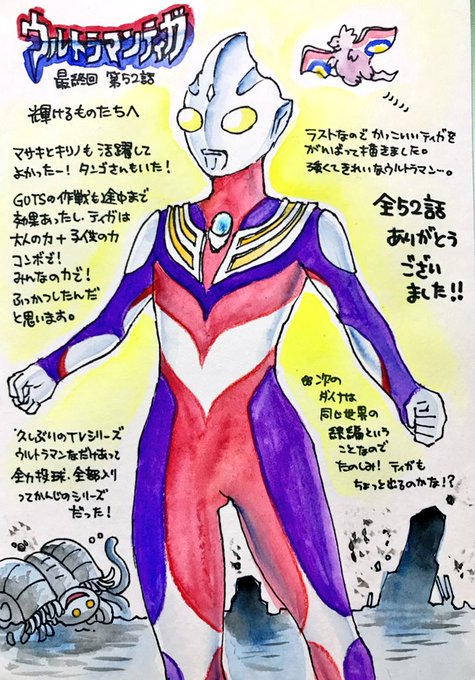 ウルトラマンティガ
最終回 第52話
輝けるものたちへ
マサキとキリノも活躍して
よかったー! タンゴさんもいた!
GUTSの作戦も途中まで
効果あったし、ティガは
大人の力+子供の力
コンボで!
みんなの力で!
ふっかつしたんだ
と思います。
久しぶりのTVシリーズ
ウルトラマンなだけあって
全力投球・全部入り
ってかんじのシリーズ
だった!
ラストなのでかっこいいティガを
がんばって描きました。
強くてきれいなウルトラマン…。
全52話
ありがとう
ござい
ました!!
次の
ダイナは
同じ世界の
続編という
ことなので
たのしみ! ティガも
ちょっと出るのかな!?